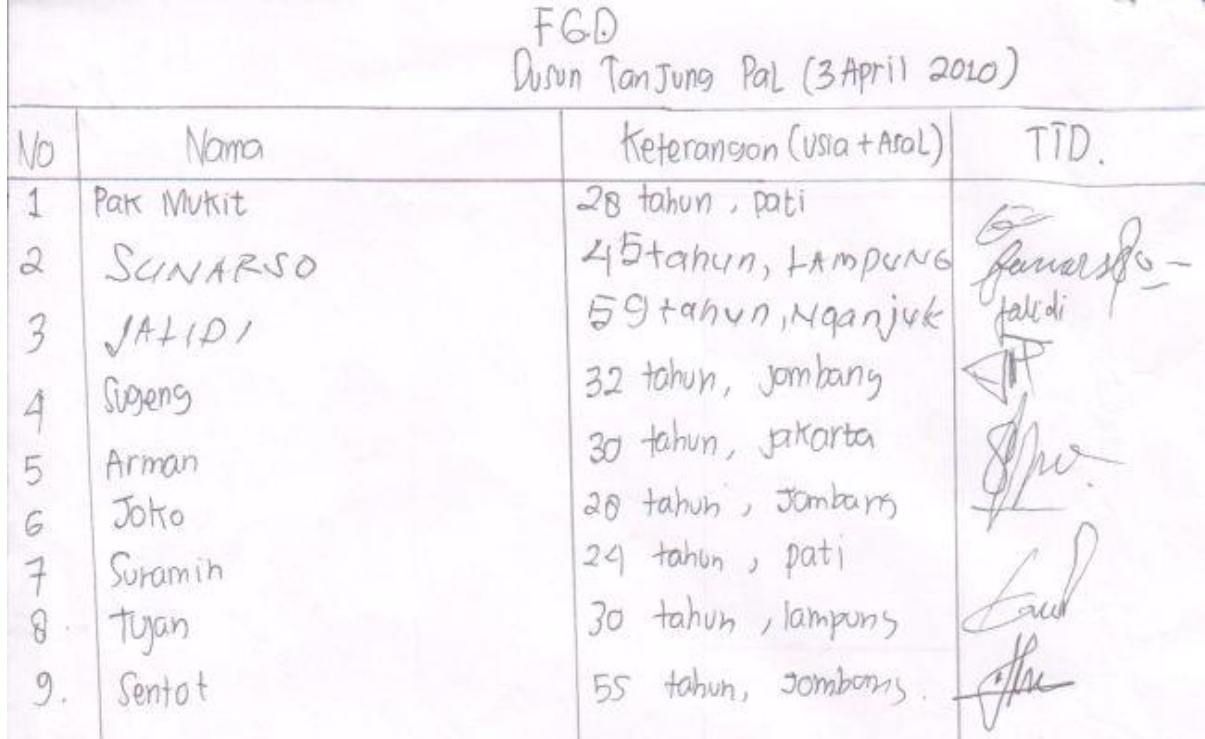 FGD
Dusun Tanjung Pal (3 April 2010)
No Nama Keterangan (usia + Asal) TTD.
1 Pak Mukit 28 tahun, pati
2 SUNARSO 45 tahun, LAMPUNG Sunarso
3 JALIDI 59 tahun, Nganjuk Jalidi
4 Sugeng 32 tahun, jombang
5 Arman 30 tahun, jakarta
6 Joko 28 tahun, Jombang
7 Suramin 24 tahun, pati
8. Tujan 30 tahun, lampung
9. Sentot 55 tahun, Jombang.